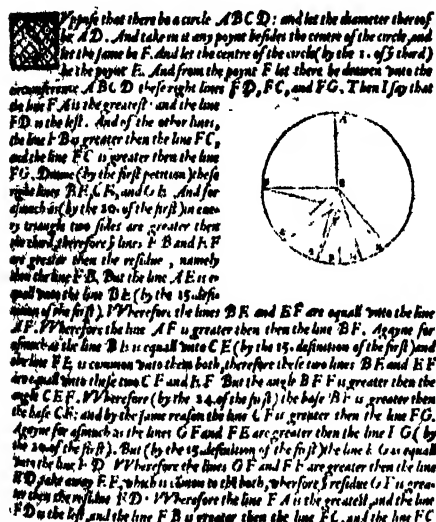 Vppose that there be a circle A B C D : and let the diameter therof
be A D . And take in it any poynt besides the center of the circle, and
let the same be F. And let the centre of the circle (by the 1. of ỹ third)
be the poynt E. And from the poynt F let there be drawen vnto the
circumference A B C D these right lines F B, F C, and F G. Then I say that
the line F A is the greatest : and the line
F D is the lest. And of the other lines,
the line F B is greater then the line F C,
and the line F C is greater then the line
F G. Drawe (by the first peticion) these
right lines B E, C E, and G E. And for
asmuch as (by the 20. of the first) in eue-
ry triangle two sides are greater then
the third, therefore ỹ lines E B and E F
are greater then the residue , namely
then the line F B. But the line A E is e-
quall vnto the line B E (by the 15. defi-
nition of the first ). VVherefore the lines B E and E F are equall vnto the line
A F. VVherefore the line A F is greater then then the line B F. Agayne for
asmuch as the line B E is equall vnto C E (by the 15. definition of the first) and
the line F E is common vnto them both, therefore these two lines B E and E F
are equall vnto these two C E and E F. But the angle B E F is greater then the
angle C E F. VVherefore (by the 24. of the first) the base B F is greater then
the base C F: and by the same reason the line C F is greater then the line F G.
Agayne for asmuch as the lines G F and F E are greater then the line E G ( by
the 20. of the first). But (by the 15. definition of the first) the line E G is equall
vnto the line E D : VVherefore the lines G F and F E are greater then the line
E D, take away E F, which is common to thē both, wherfore ỹ residue G F is grea-
ter then the residue F D . VVherefore the line F A is the greatest, and the line
F D is the lest, and the line F B is greater then the line F C, and the line F C
A
B